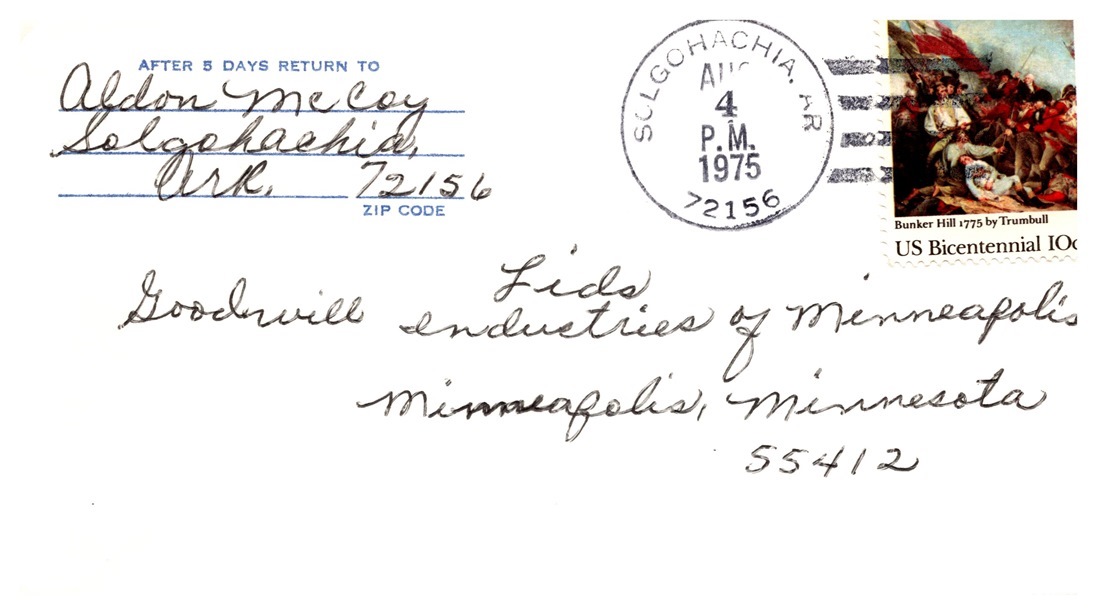 AFTER 5 DAYS RETURN TO
Aldon McCoy
Solgohachia,
Ark. 72156
ZIP CODE
SOLGOHACHIA, AR
AUG
4
P.M.
1975
72156
Bunker Hill 1775 by Trumbull
US Bicentennial 10c
Lids
Goodwill Industries of Minneapolis
Minneapolis, Minnesota
55412